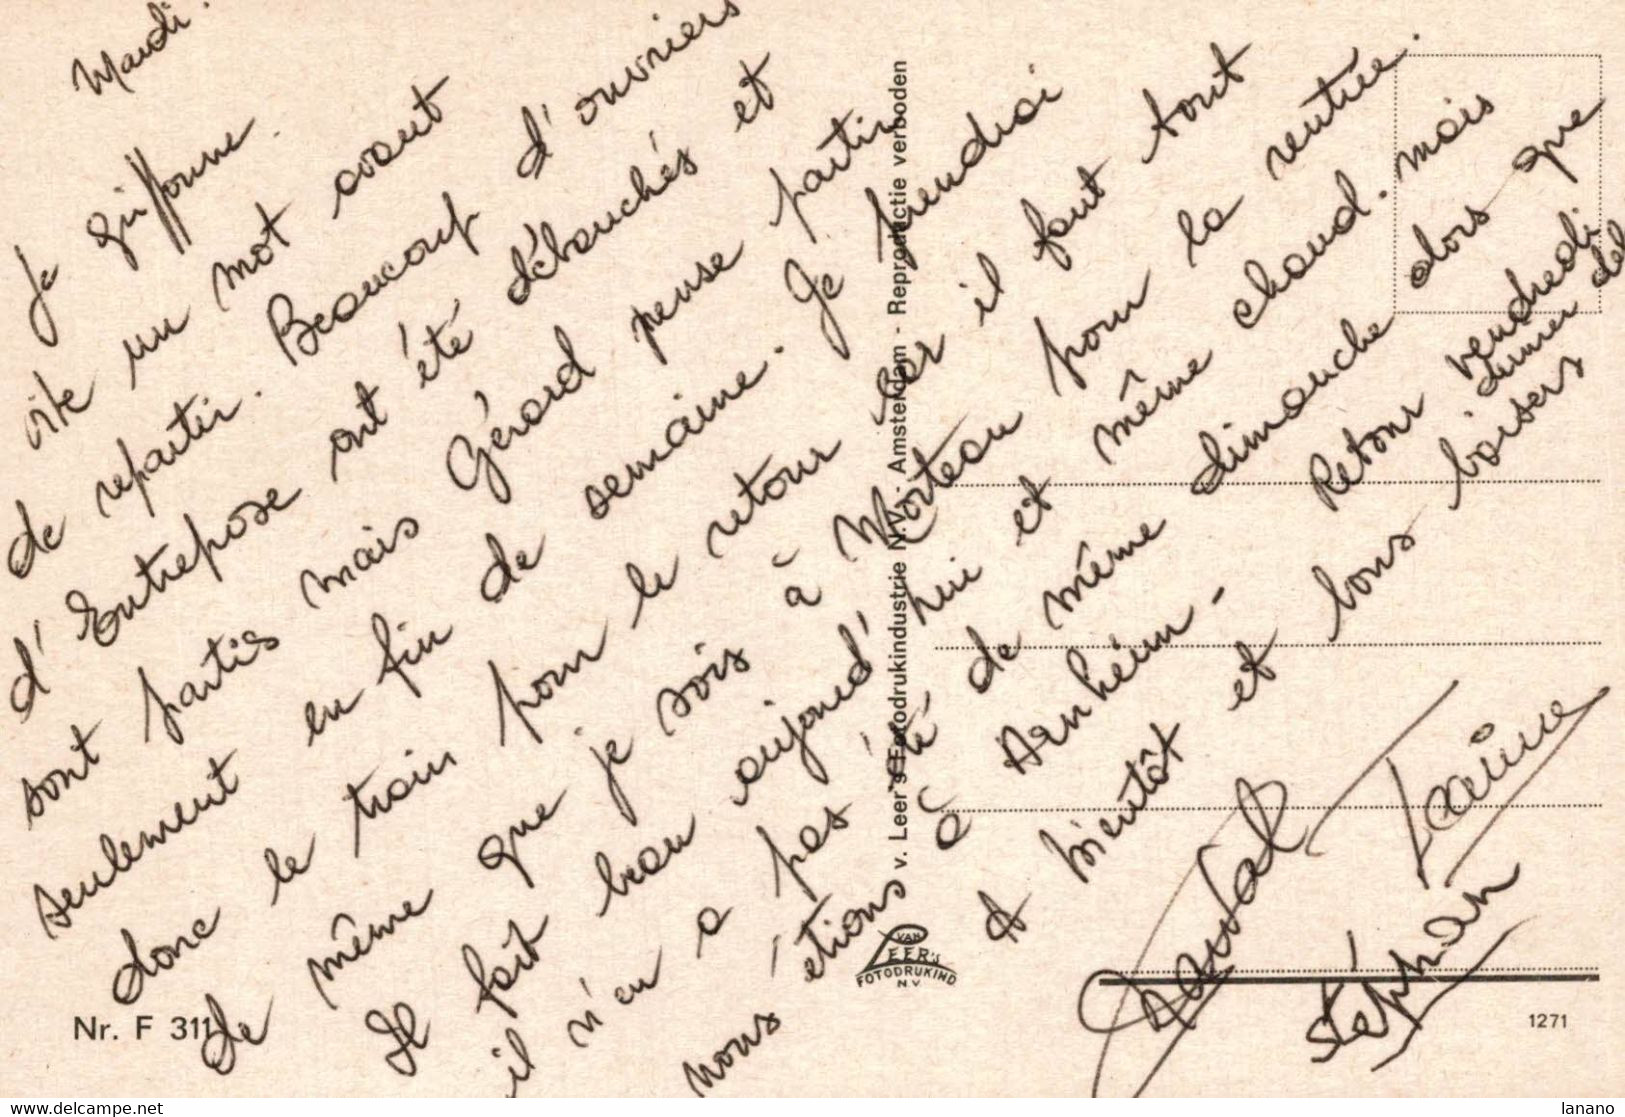 Mardi.
Je griffonne
vite un mot avant
de repartir. Beaucoup d'ouvriers
d'Entrepose ont été débauchés et
sont partis mais Gérard pense partir
seulement en fin de semaine. Je prendrai
donc le train pour le retour car il faut tout
de même que je sois à Morteau pour la rentrée.
Il fait beau aujourd'hui et même chaud. mais
il n'en a pas été de même dimanche alors que
nous étions à Arnheim - Retour vendredi
A bientôt et bons baisers
Stéphan
v. Leer's Fotodrukindustrie N.V. - Amsterdam - Reproductie verboden
VAN
LEER'S
FOTODRUKIND
N.V.
Nr. F 311
1271
https://www.delcampe.net
lanano